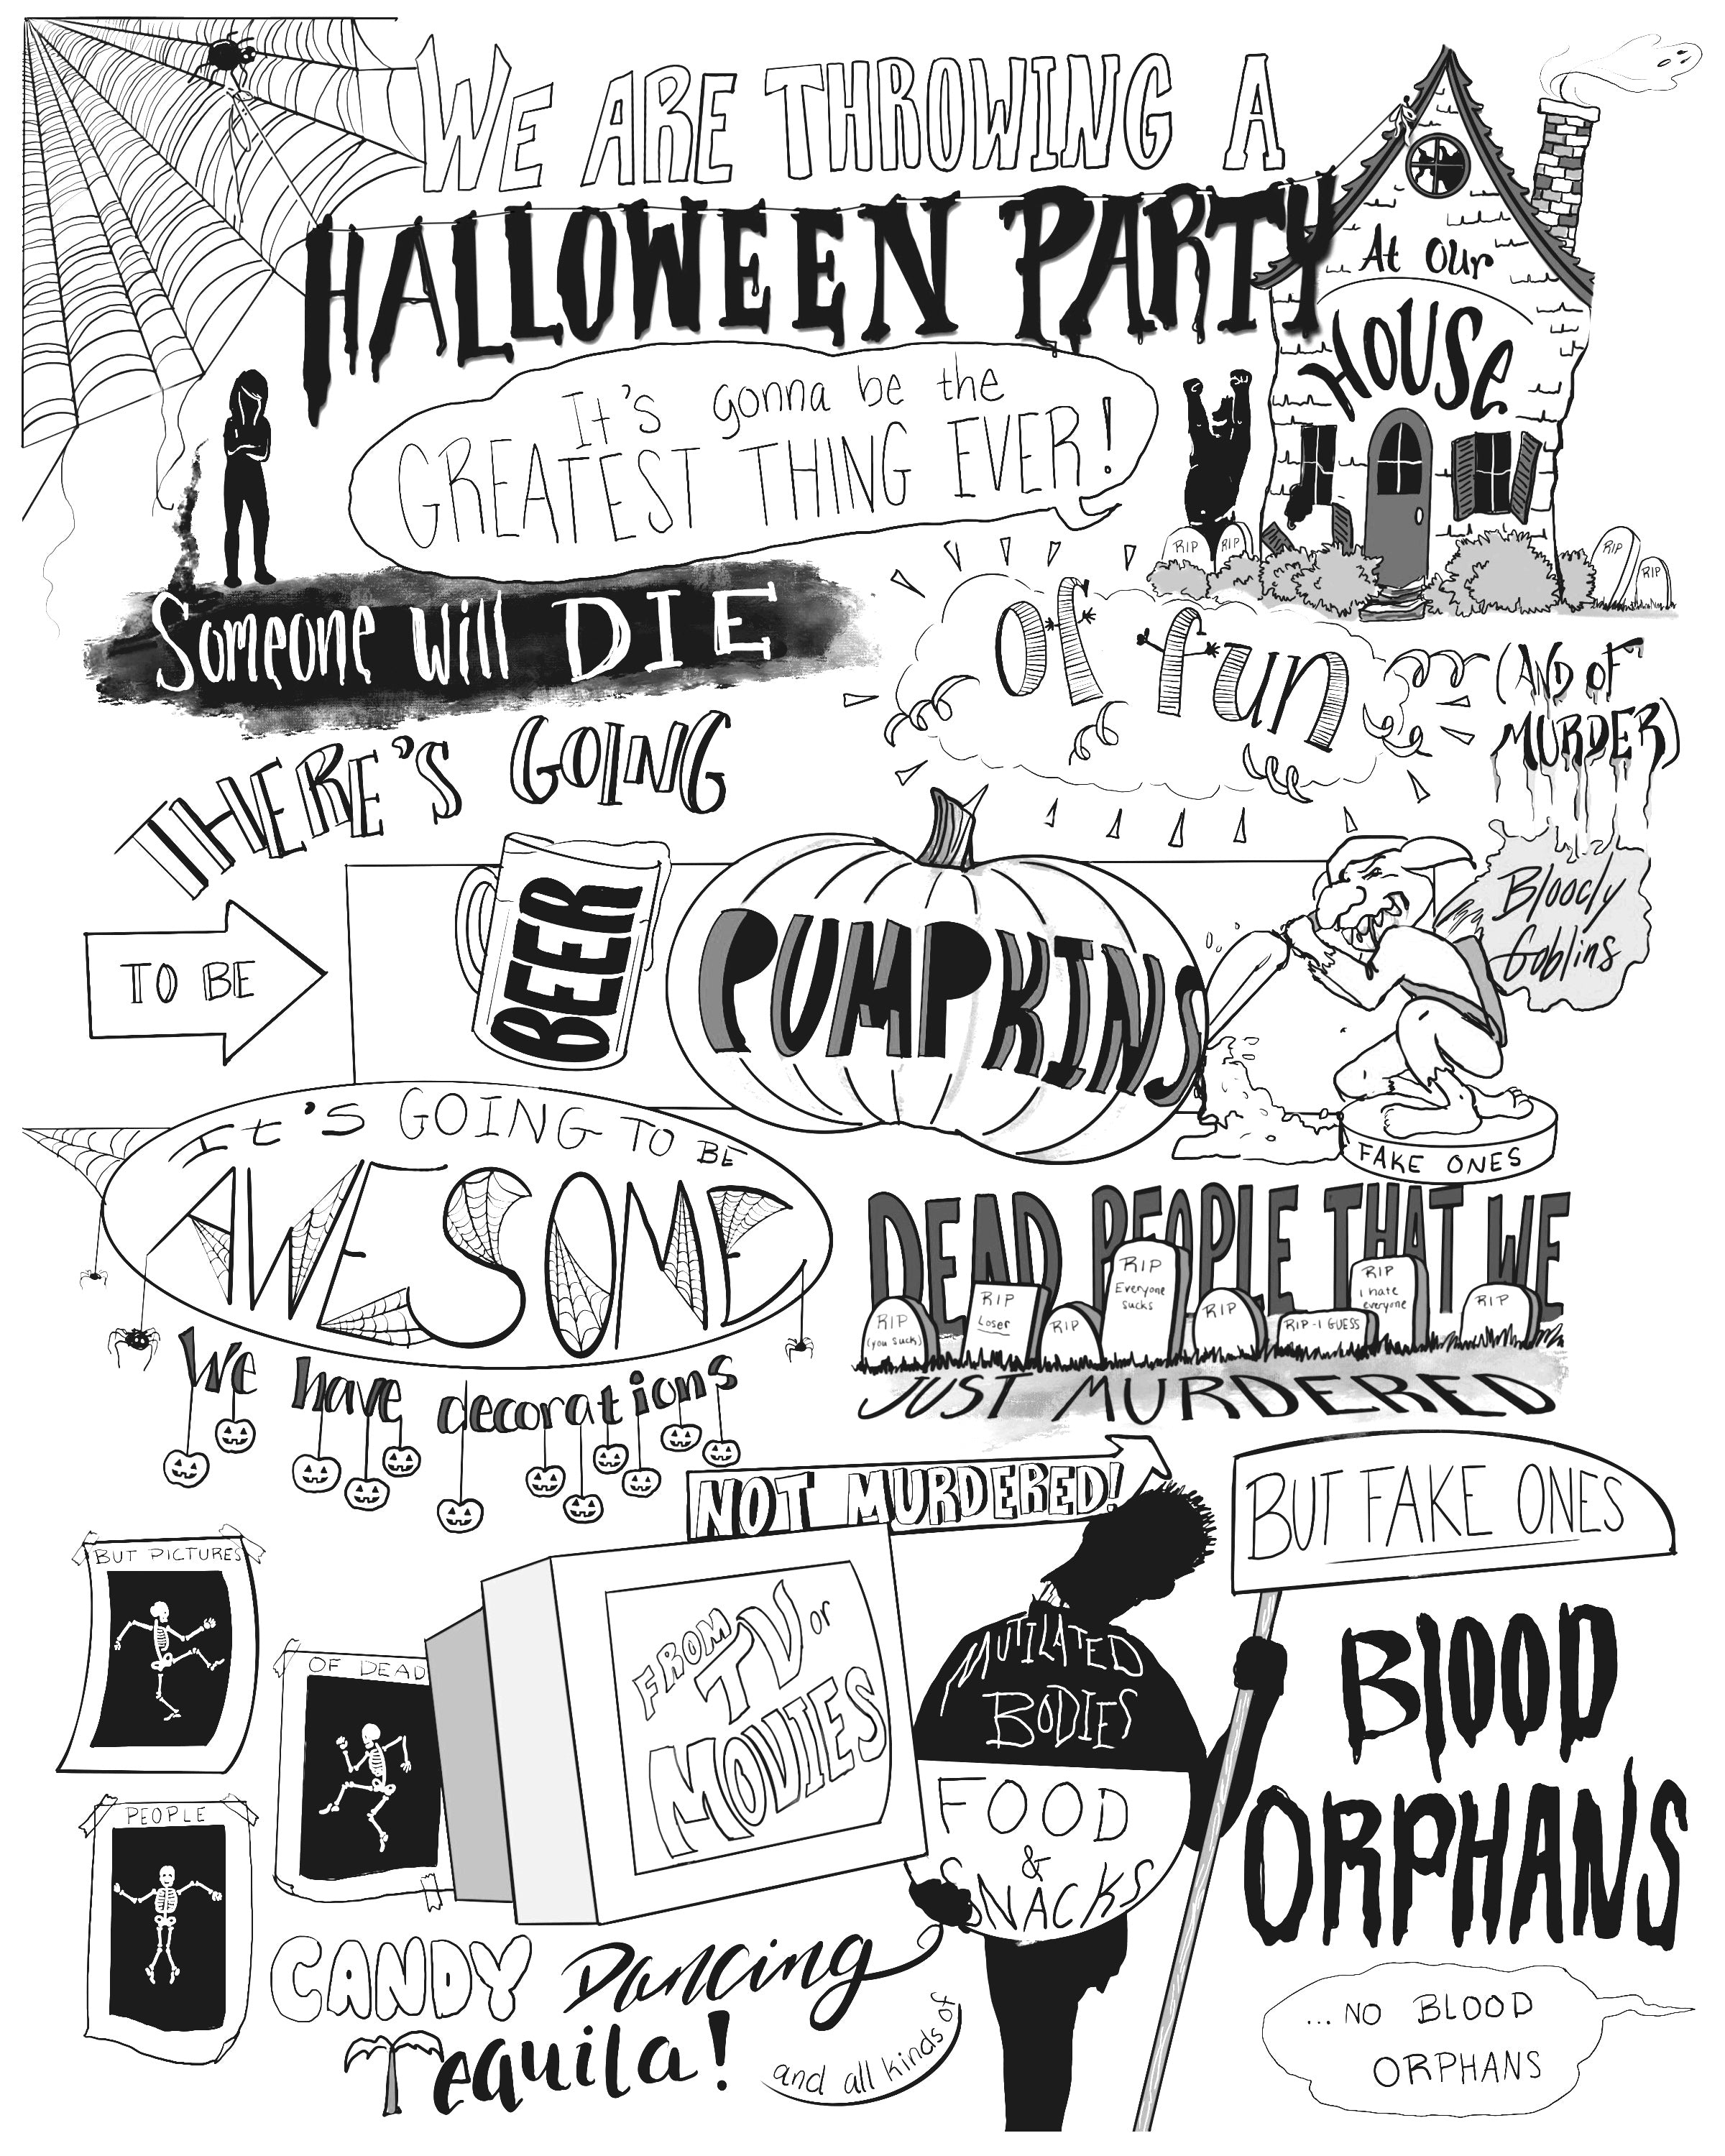 WE ARE THROWING A
HALLOWEEN PARTY
At Our
HOUSE
It's gonna be the
GREATEST THING EVER!
RIP
RIP
RIP
RIP
Someone will DIE
of fun
(AND OF
MURDER)
THERE'S GOING
TO BE
BEER
PUMPKINS
Bloody
Goblins
FAKE ONES
It's GOING TO BE
AWESOME
DEAD PEOPLE THAT WE
RIP
(you suck)
RIP
Loser
RIP
RIP
Everyone
sucks
RIP
RIP-I GUESS
RIP
I hate
everyone
RIP
JUST MURDERED
We have decorations
NOT MURDERED!
BUT FAKE ONES
BUT PICTURES
OF DEAD
PEOPLE
FROM
TV or
MOVIES
MUTILATED
BODIES
FOOD
&
SNACKS
BLOOD
ORPHANS
CANDY Dancing
Tequila!
and all kinds of
...NO BLOOD
ORPHANS